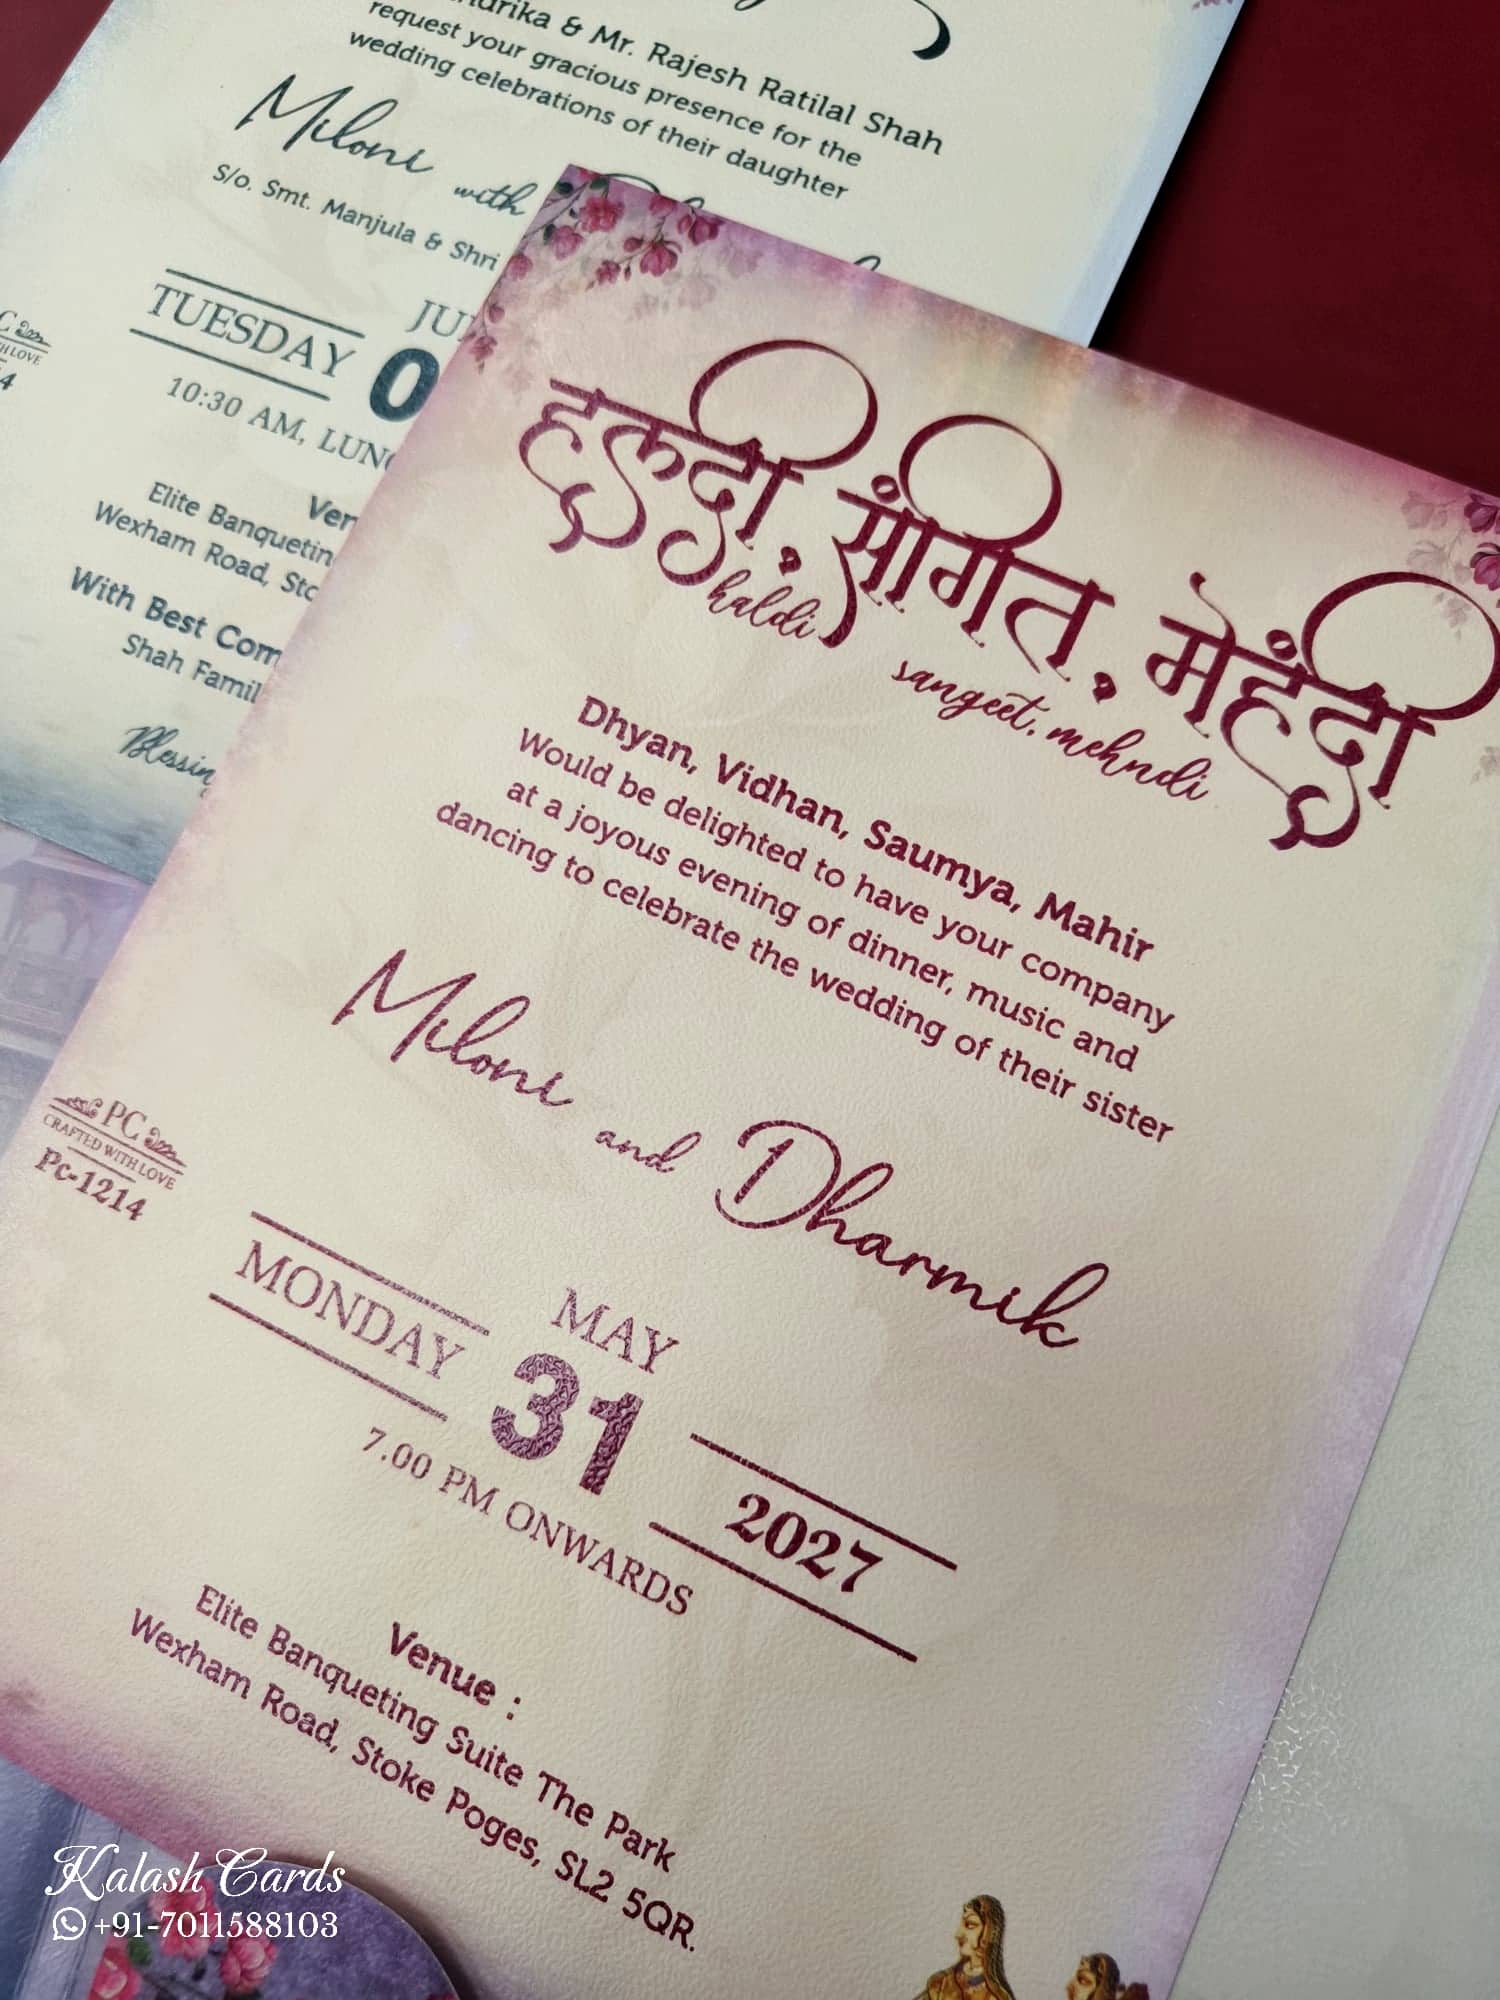 & Mr. Rajesh Ratilal Shah
request your gracious presence for the
wedding celebrations of their daughter
Miloni with
S/o. Smt. Manjula & Shri
TUESDAY
10:30 AM,
Elite
Wexham Road,
With Best
Shah
हल्दी, संगीत, मेहंदी
haldi
sangeet, mehndi
Dhyan, Vidhan, Saumya, Mahir
Would be delighted to have your company
at a joyous evening of dinner, music and
dancing to celebrate the wedding of their sister
Miloni and Dharmik
PC
CRAFTED WITH LOVE
Pc-1214
MONDAY
MAY
31
2027
7.00 PM ONWARDS
Venue :
Elite Banqueting Suite The Park
Wexham Road, Stoke Poges, SL2 5QR.
Kalash Cards
+91-7011588103